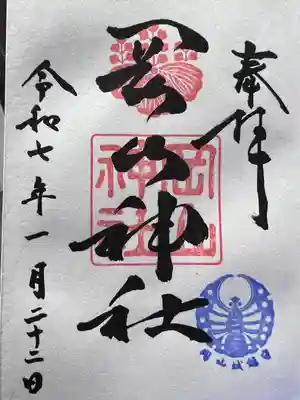 奉拝
岡山神社
岡山
神社
令和七年一月二十二日